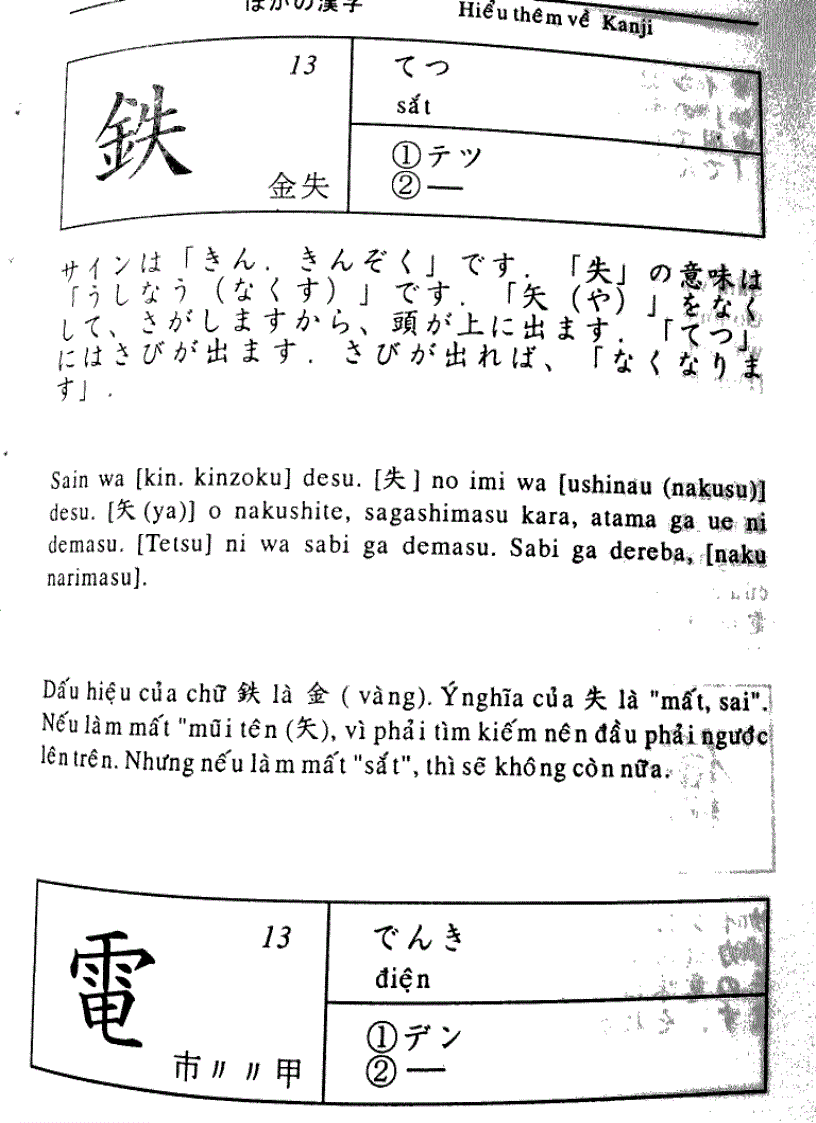 ほかの漢字
Hiểu thêm về Kanji
13
鉄
金失
てつ
sắt
①テツ
②—
サインは「きん．きんぞく」です．「失」の意味は
「うしなう（なくす）」です．「矢（や）」をなく
して、さがしますから、頭が上に出ます．「てつ」
にはさびが出ます．さびが出れば、「なくなりま
す」．
Sain wa [kin. kinzoku] desu. [失] no imi wa [ushinau (nakusu)]
desu. [矢 (ya)] o nakushite, sagashimasu kara, atama ga ue ni
demasu. [Tetsu] ni wa sabi ga demasu. Sabi ga dereba, [naku
narimasu].
Dấu hiệu của chữ 鉄 là 金 ( vàng). Ý nghĩa của 失 là "mất, sai".
Nếu làm mất "mũi tên (矢), vì phải tìm kiếm nên đầu phải ngước
lên trên. Nhưng nếu làm mất "sắt", thì sẽ không còn nữa.
13
電
市〃〃甲
でんき
điện
①デン
②—